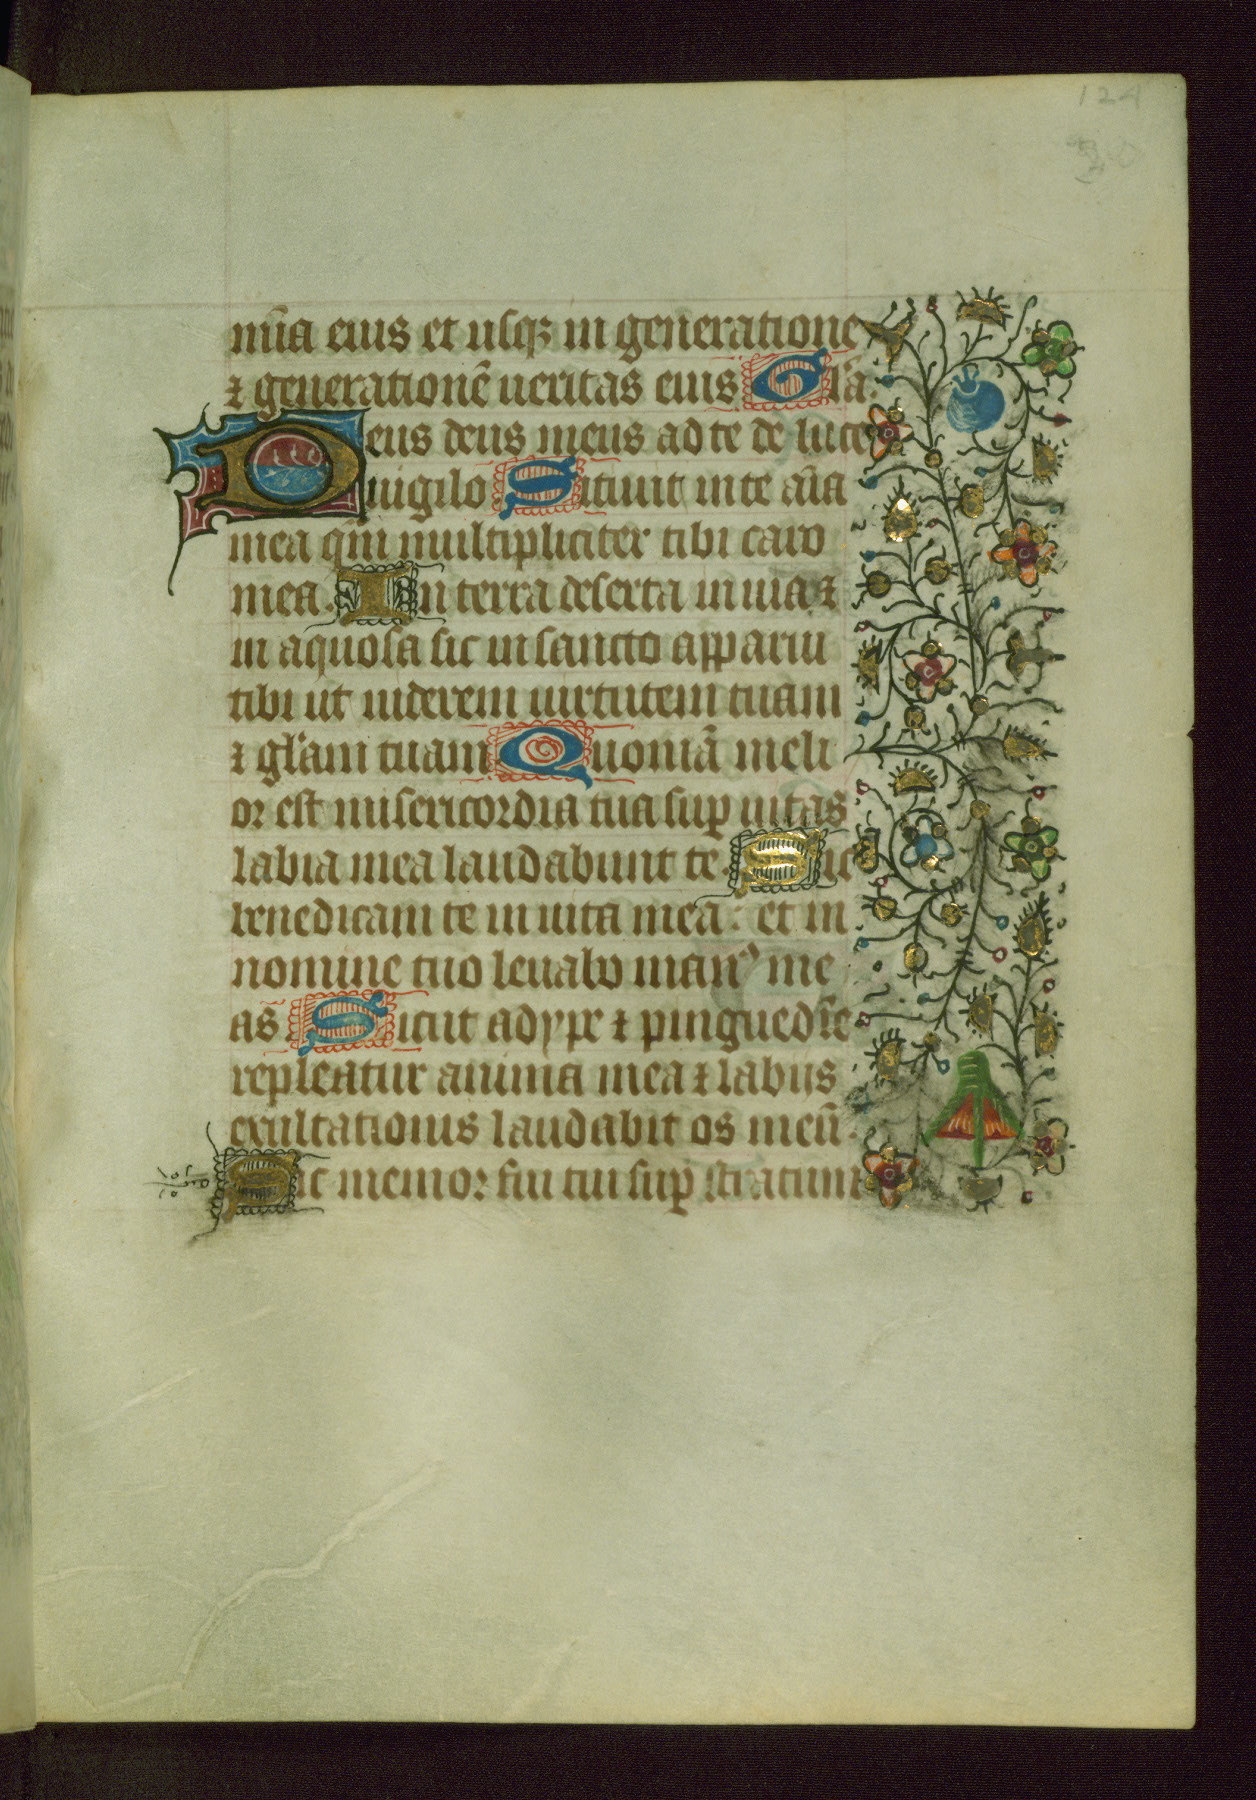 124
mīa eius et usqꝫ in generatione
⁊ generationē ueritas eius Gl'a.
Deus deus meus ad te de luce
uigilo Sitiuit in te aīa
mea qm̄ multipliciter tibi caro
mea. In terra deserta inuia ⁊
in aquosa sic in sancto apparui
tibi ut uiderem uirtutem tuam
⁊ gl'am tuam Quoniā meli
or est misericordia tua suꝑ uitas
labia mea laudabunt te. Sic
benedicam te in uita mea: et in
nomine tuo leuabo manꝰ me
as Sicut adype ⁊ pinguedīe
repleatur anima mea ⁊ labijs
exultationis laudabit os meū.
Sic memor fui tui suꝑ stratum